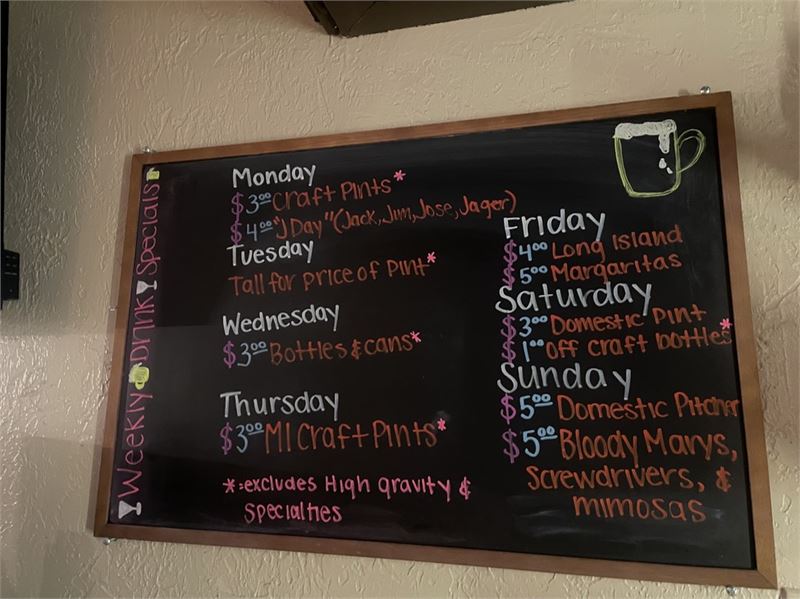 Weekly Drink Specials
Monday
$3.00 Craft Pints*
$4.00 "J Day" (Jack, Jim, Jose, Jager)
Tuesday
Tall for price of Pint*
Wednesday
$3.00 Bottles & cans*
Thursday
$3.00 MI Craft Pints*
*=excludes High gravity &
Specialties
Friday
$4.00 Long Island
$5.00 Margaritas
Saturday
$3.00 Domestic Pint
$1.00 off craft bottles*
Sunday
$5.00 Domestic Pitcher
$5.00 Bloody Marys,
screwdrivers, &
mimosas